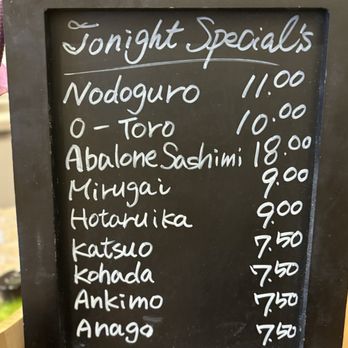 Tonight Special's
Nodoguro 11.00
O-Toro 10.00
Abalone Sashimi 18.00
Mirugai 9.00
Hotaruika 9.00
Katsuo 7.50
Kohada 7.50
Ankimo 7.50
Anago 7.50